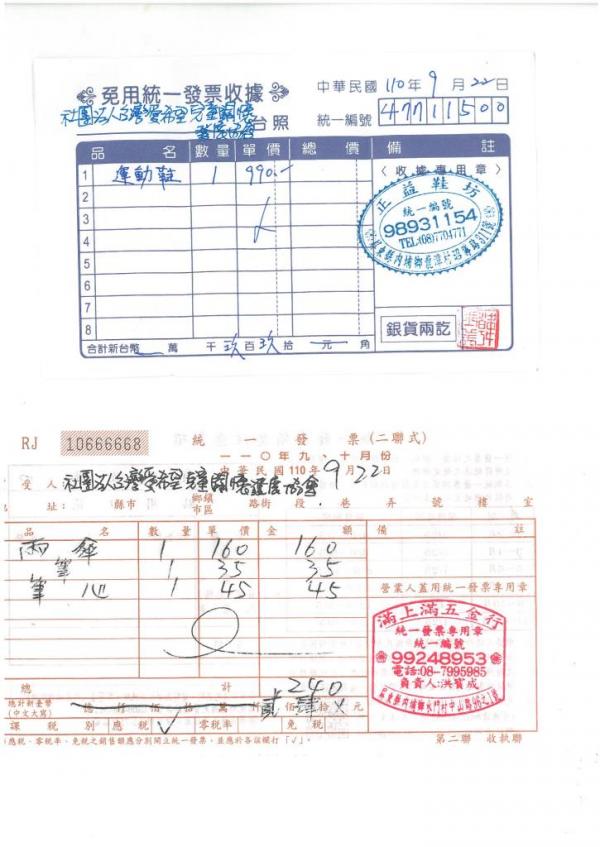 免用統一發票收據
中華民國 110年 9 月 22 日
社團法人台灣愛希望兒童關懷
發展協會 台照
統一編號 47711500
品 名 數量 單價 總價 備 註
1 運動鞋 1 990.-
〈收據專用章〉
2
3
4
5
6
7
8
正益鞋坊
統一編號
98931154
TEL:(08)7704771
銀貨兩訖
合計新台幣 萬 千 玖 百 玖 拾 元 角
RJ 10666668 統一發票(二聯式)
一一〇年九、十月份
中華民國110年 9 月 22 日
受人 社團法人台灣愛希望兒童關懷發展協會
地址: 縣市 鄉鎮市區 路街 段 巷 弄 號 樓 室
品 名 數量 單價 金 額 備 註
雨傘 1 160 160
筆 1 35 35
筆心 1 45 45
營業人蓋用統一發票專用章
滿上滿五金行
統一發票專用章
統一編號
99248953
電話:08-7995985
負責人:洪寶成
總 計 240
總計新臺幣
(中文大寫) 億 仟 佰 拾 萬 仟 貳 佰 肆 拾 元
課稅別 應稅 ✓ 零稅率 免稅
應稅、零稅率、免稅之銷售額應分別開立統一發票,並應於各該欄打「✓」。
第二聯 收執聯